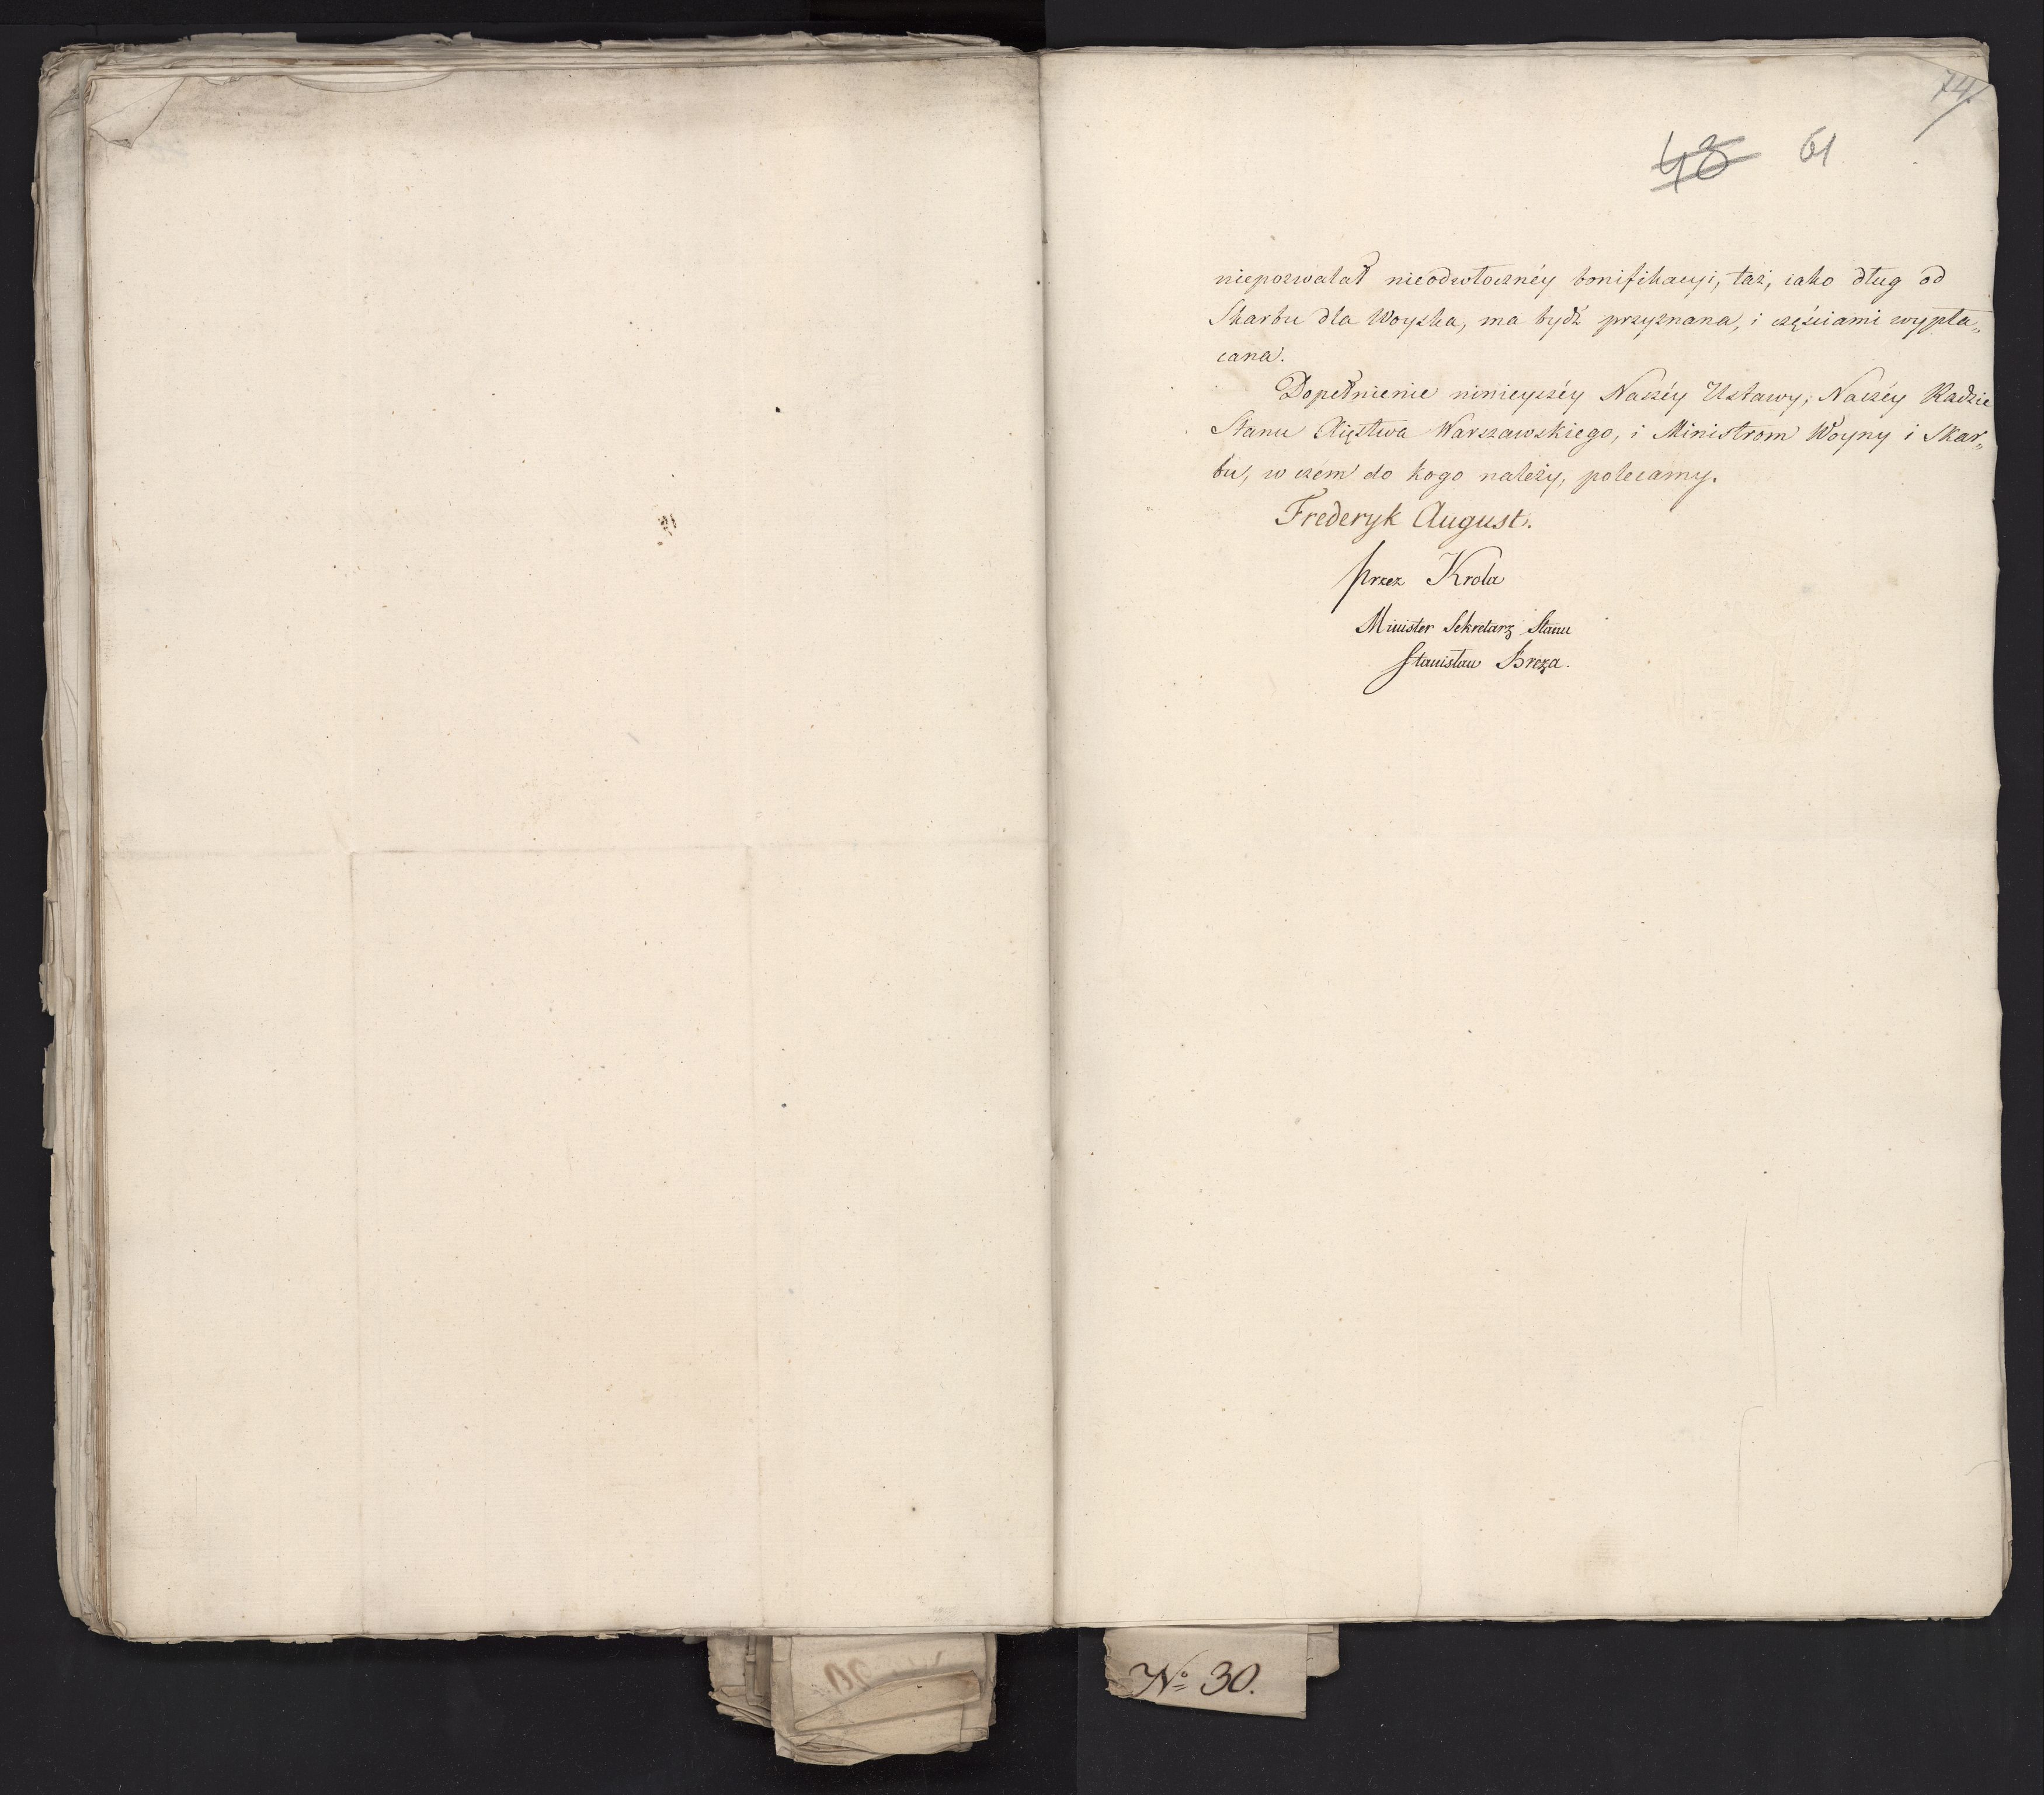 74.
48 61
niepozwalał nieodwłocznéy bonifikacyi, taż, iako dług od
Skarbu dla Woyska, ma bydź przyznana, i częściami wypła„
cana.
Dopełnienie ninieyszéy Naszéy Ustawy, Naszéy Radzie
Stanu Xięstwa Warszawskiego, i Ministrom Woyny i Skar„
bu, w czem do kogo należy, polecamy.
Frederyk August.
przez Krola
Minister Sekretarz Stanu
Stanisław Breza.
No 30.